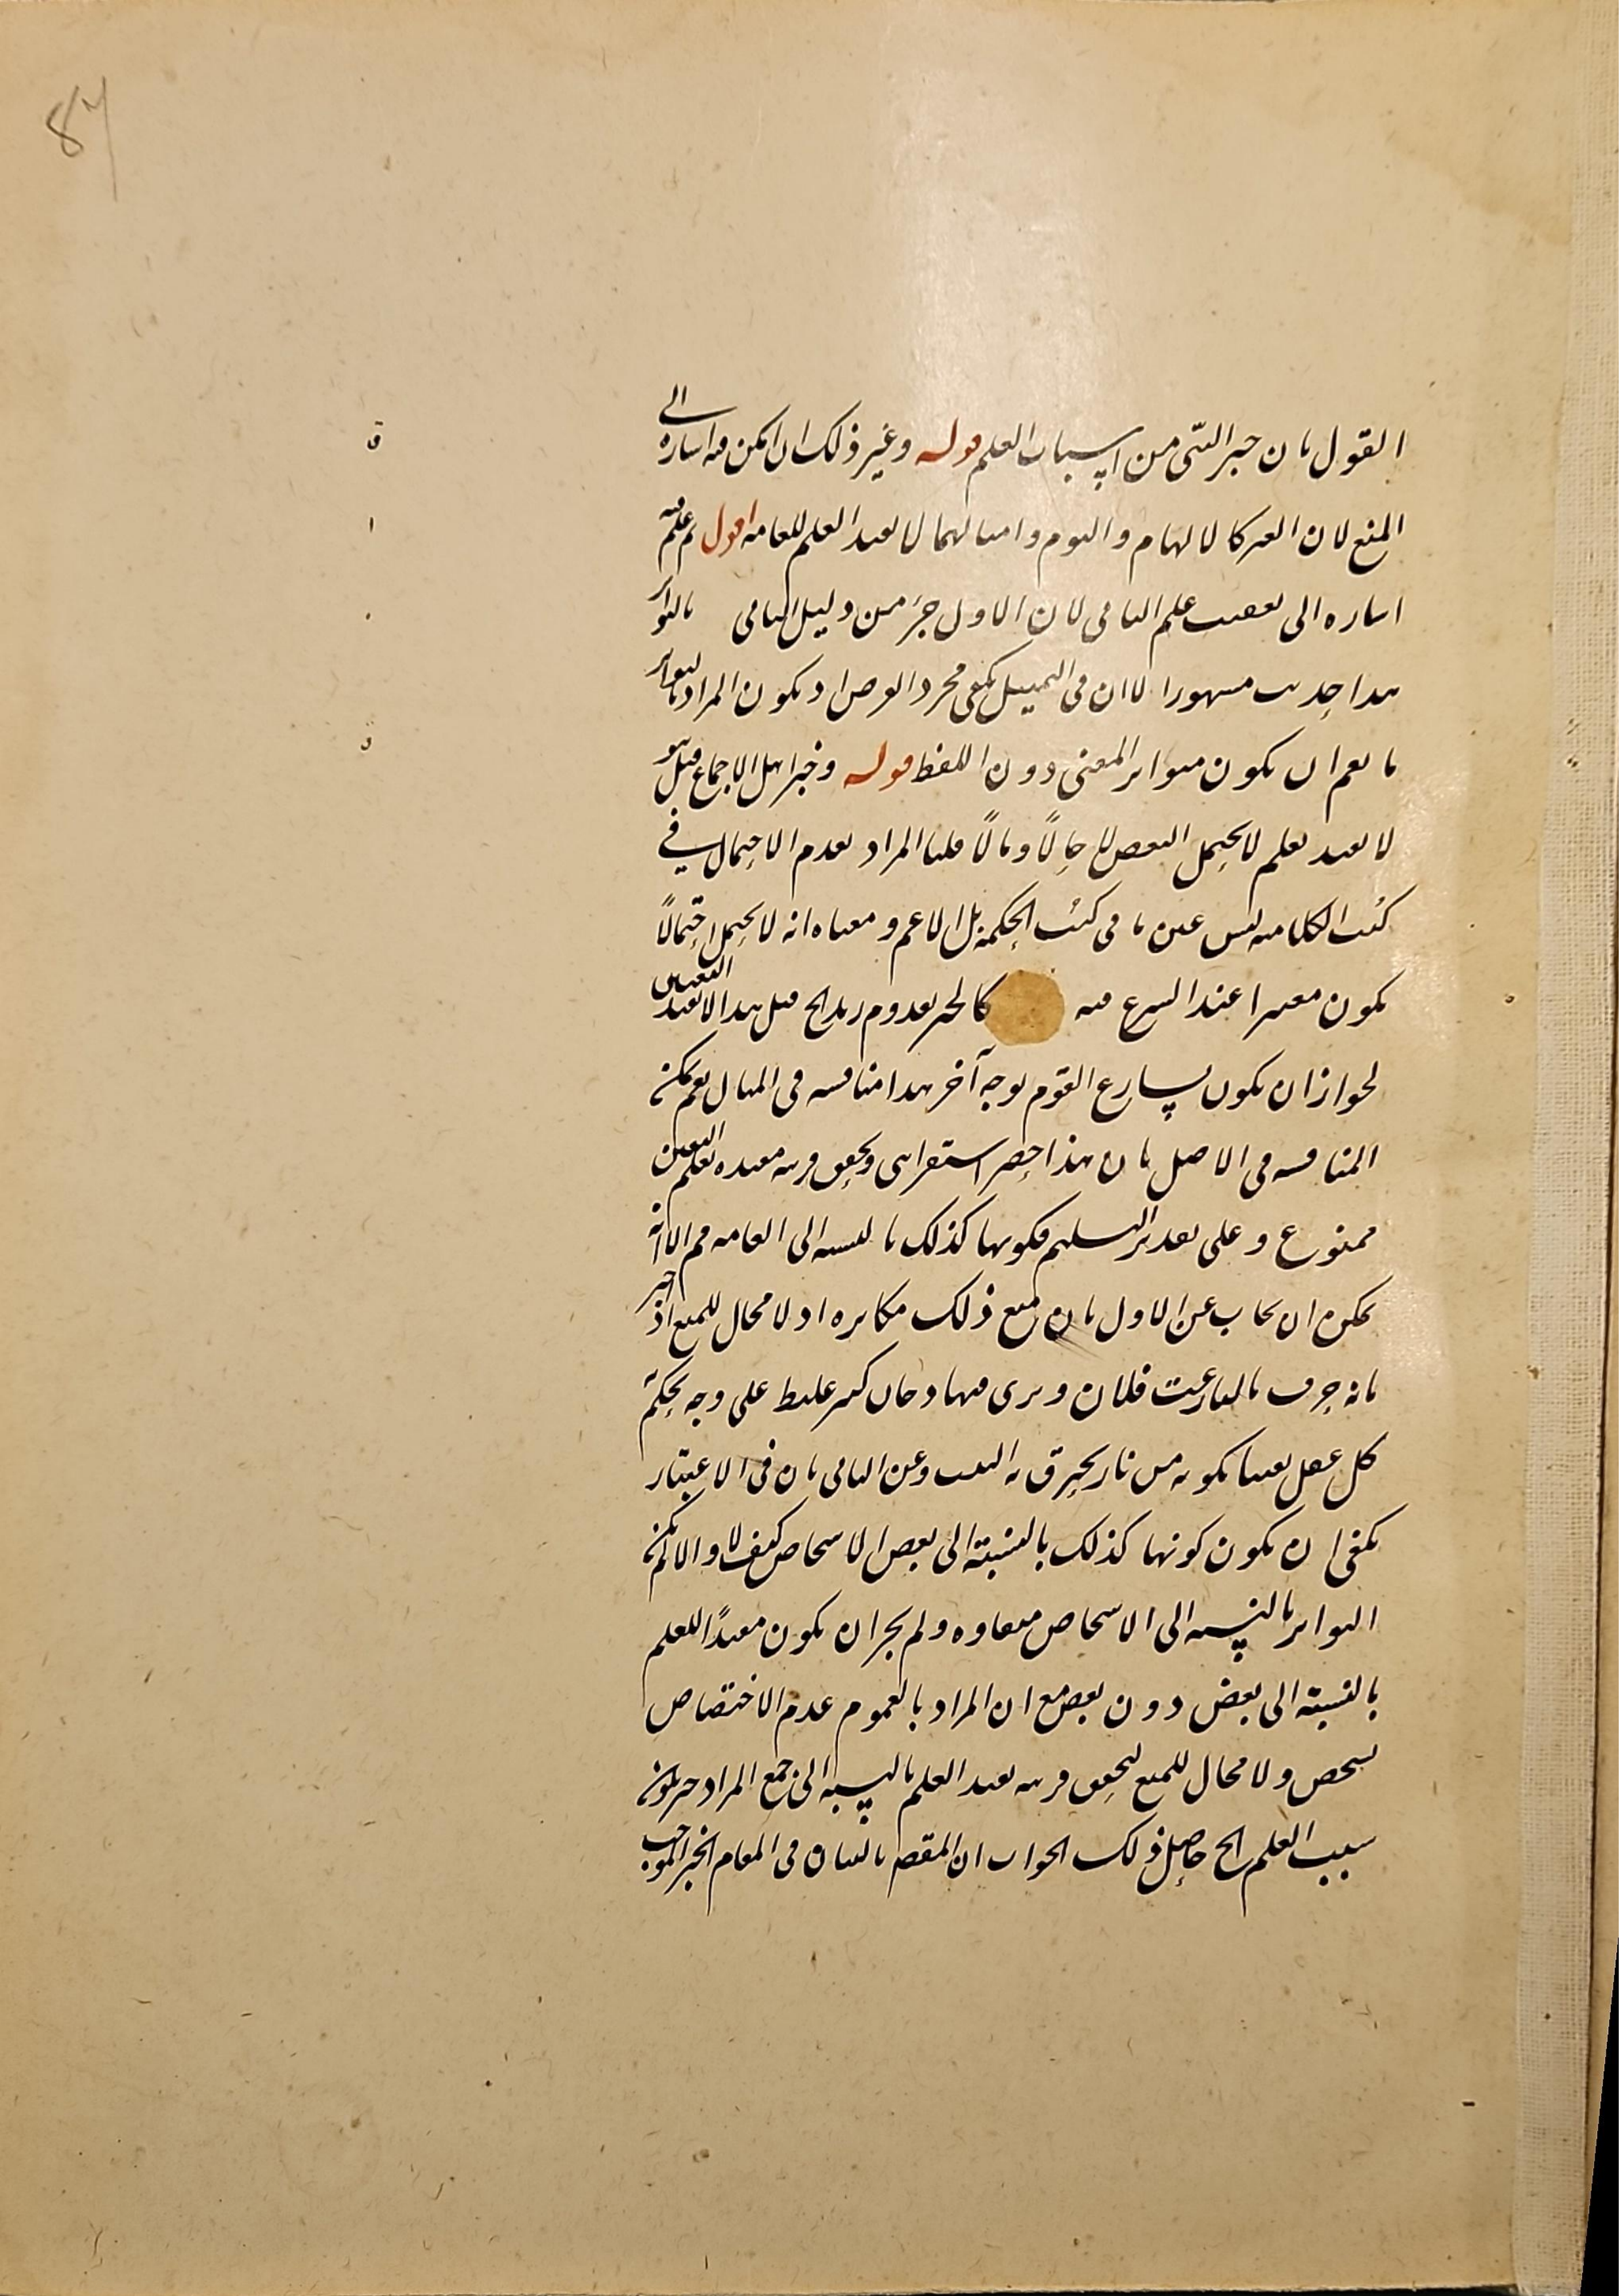 87
القول بان خبر النبى من اسباب العلم قوله وغير ذلك ان امكن فيه اشارة الى
المنع لان الغير كالالهام والنوم وامثالهما لا يفيد العلم للعامة اقول ثم علم فيه
اشاره الى علم الثانى لان الاول جزء من دليل الثانى بالتواتر
هذا حديث مشهور الا ان فى التمثيل يكفى مجرد الفرض او يكون المراد بالتواتر
ما يعم ان يكون متواتر المعنى دون اللفظ قوله وخبر اهل الاجماع قيل هو
لا يفيد لعلم لا يحتمل النقيض حالًا ومالًا قلنا المراد بعدم الاحتمال فى
كتب الكلاميه ليس عين ما فى كتب الحكمة بل الاعم ومعناه انه لا يحتمل احتمالًا
يكون معتبرا عند الشرع فيه كالخبر بقدوم زيد الخ قيل هذا لا يفيد اليقين
لجواز ان يكون تسارع القوم لوجه آخر هذا مناقشه فى المثال نعم يمكن
المناقشه فى الاصل بان هذا حصر استقرائى وتحقق قرينه مفيده لعلم اليقين
ممنوع وعلى تقدير التسليم فكونها كذلك بالنسبه الى العامه مم الا انه
يمكن ان يجاب عن الاول بان منع ذلك مكابره اذ لا مجال للمنع اذ اخبر
بانه حرق بالنار بيت فلان ويرى منها دخان كثير غليظ على وجه يحكم
كل عقل يقينا بكونه من نار يحرق به البيت وعن الثانى بان فى الاعتبار
يكفى ان يكون كونها كذلك بالنسبة الى بعض الاشخاص كيف لا والا لم يكن
التواتر بالنسبه الى الاشخاص متفاوه ولم يجز ان يكون مفيدًا للعلم
بالنسبة الى بعض دون بعض مع ان المراد بالعموم عدم الاختصاص
بشخص ولا مجال للمنع لتحقق قرينه تفيد العلم بالنسبه الى جمع المراد خبر يكون
سبب العلم الخ حاصل ذلك الجواب ان المقصم بالبيان فى المقام الخبر الموجب